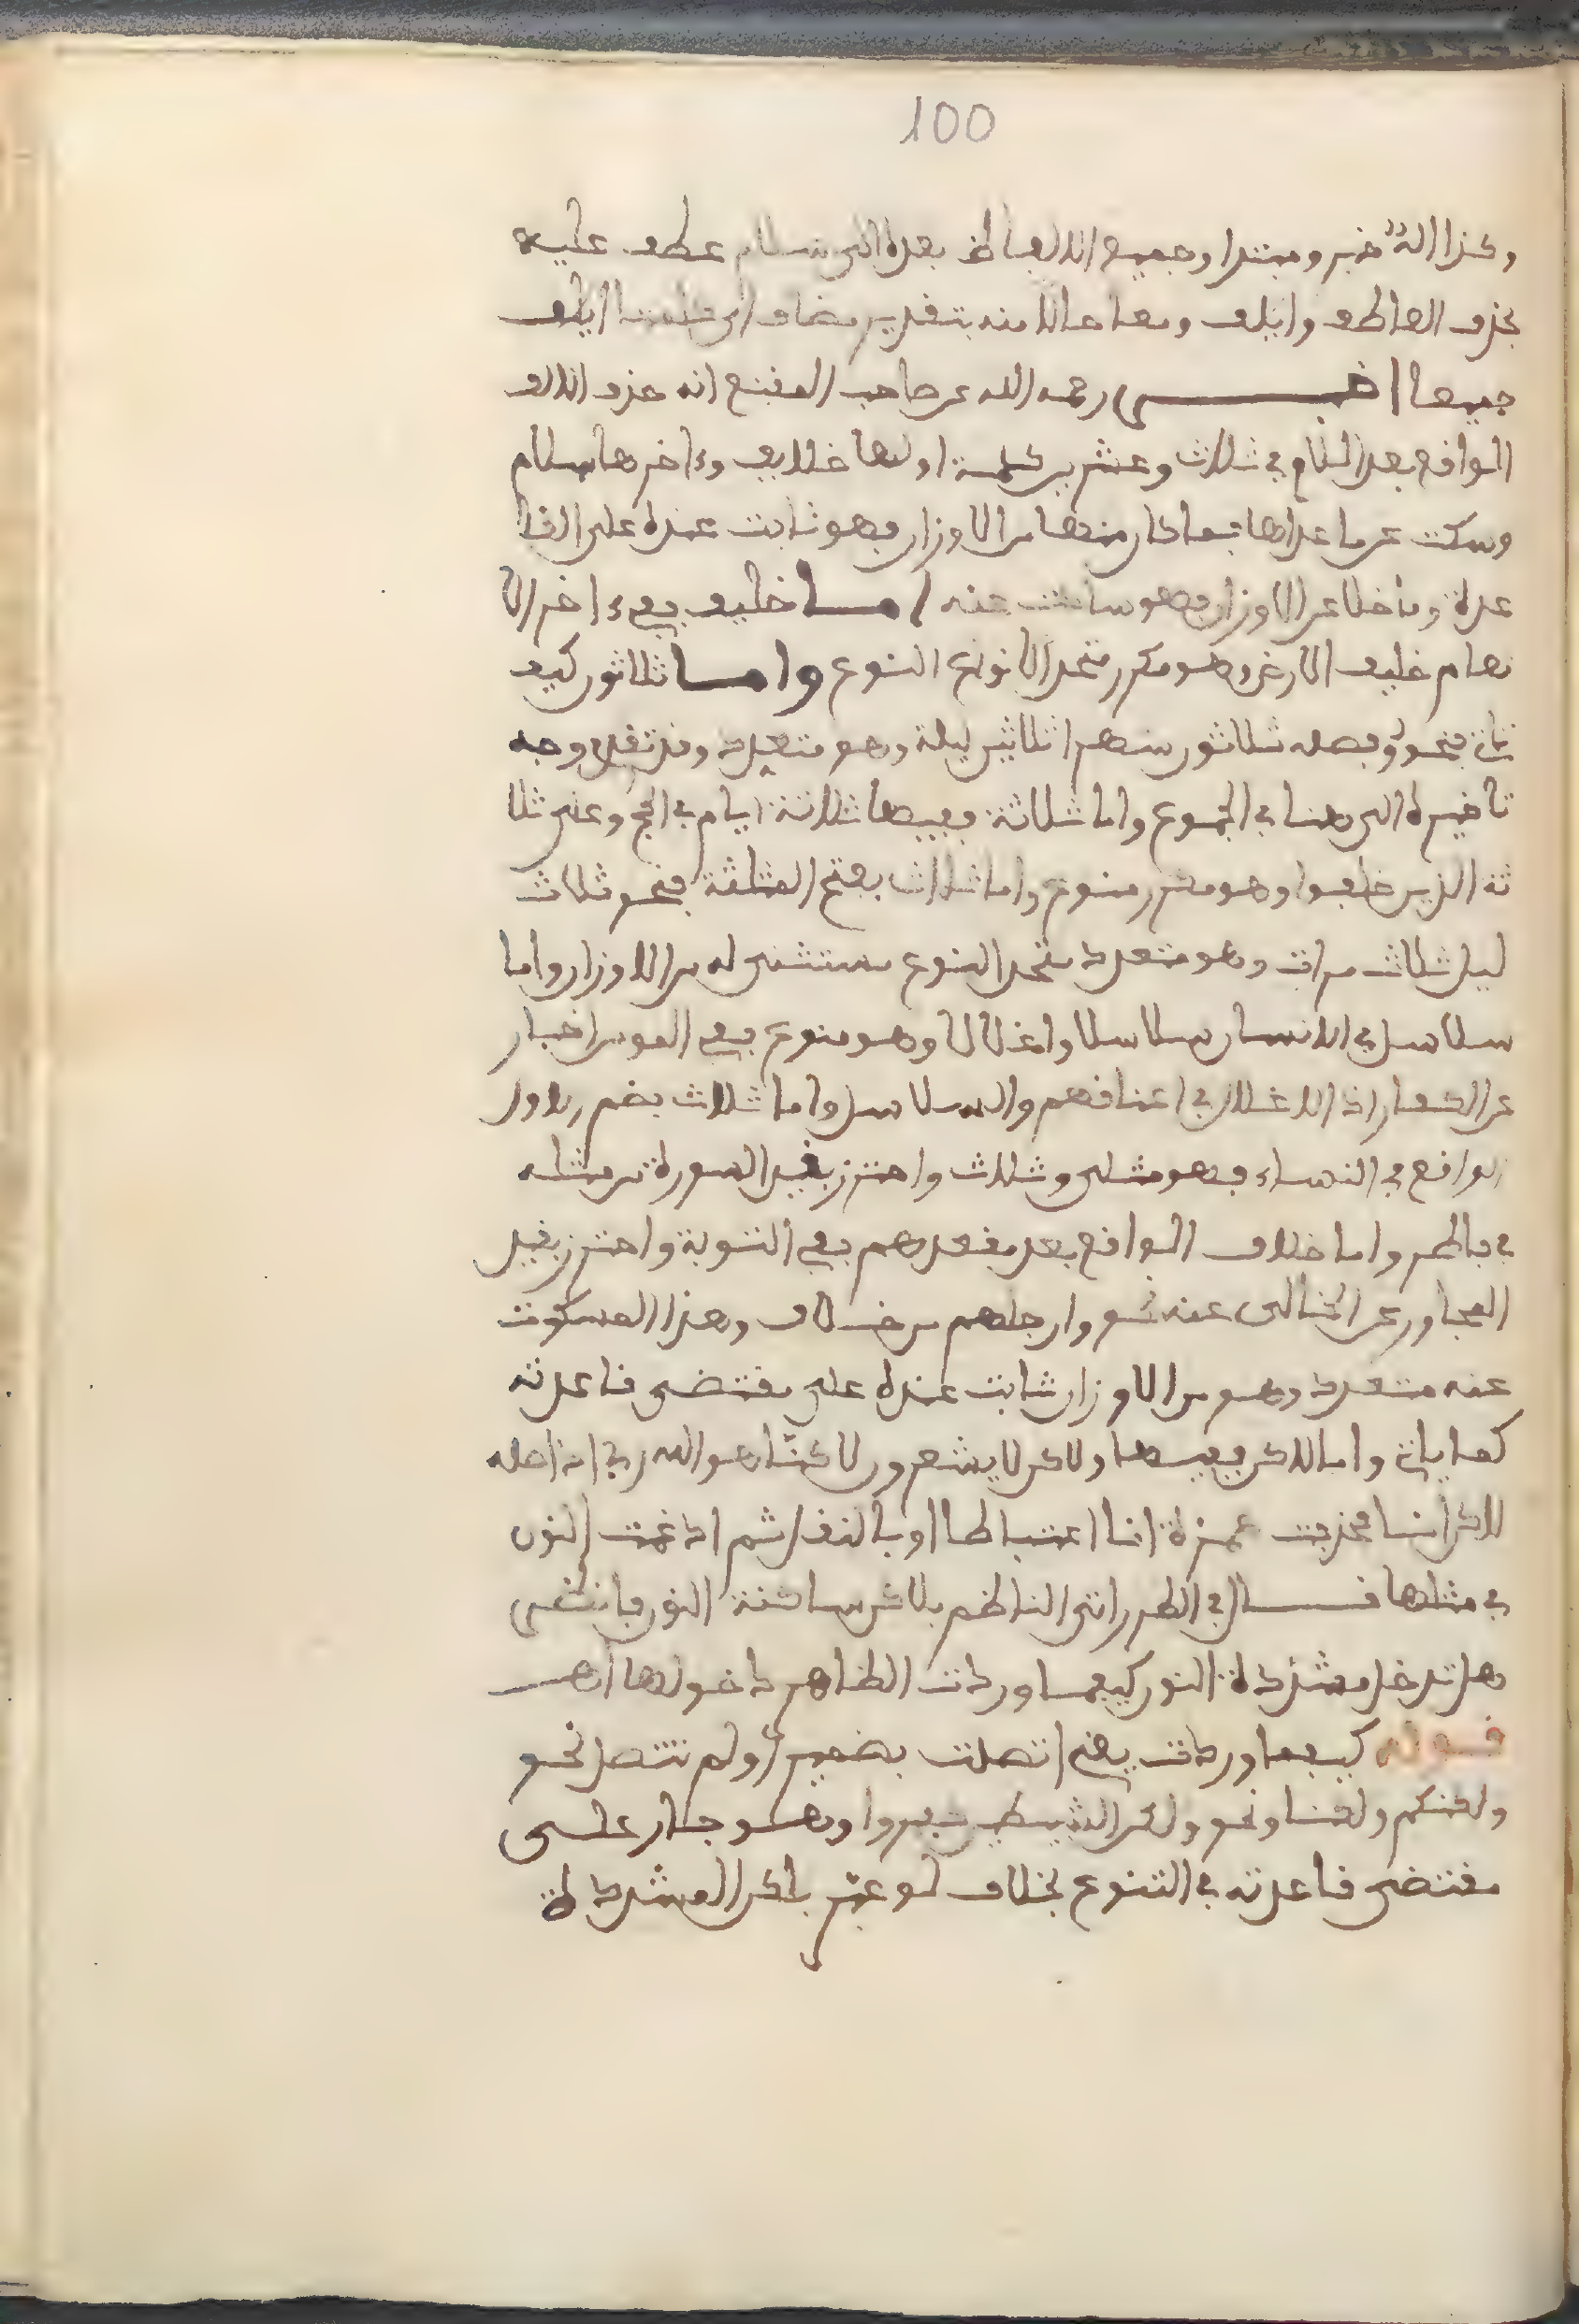 100
وكذا اله خبر ومبتدا وجميع الالفاظ بعده الى سلام عطف عليه
بحذف العاطف وايلف ومعا حالا منه بتقدير مضاف اى كلمتا ايلف
جميعا اخبر رحمه الله عن صاحب المقنع انه حذف الالف
الواقع بعد اللام في ثلاث وعشرين كلمة اولها خلايف وءاخرها سلام
وسكت عن ما عداها فما كان منها من الاوزان فهو ثابت عنده على القا
عدة وما خلا عن الاوزان فهو ساكت عنه اما خليف ففى ءاخر الا
نعام خليف الارض وهو مكرر متحد لانواع النوع واما ثلاثون كيف
يات فنحو وفصله ثلاثون شهرا ثلاثين ليلة وهو متعدد وقد تقدم وجه
تاخيره الى هنا في الجموع واما ثلاثة ففيها ثلاثة ايام في الحج وعلى ثلا
ثة الذين خلفوا وهو مكرر منوع واما ثلاث بفتح المثلثة فنحو ثلاث
ليال ثلاث مرات وهو متعدد متحد النوع مستثنى له من الاوزان واما
سلاسل في الانسان سلاسلا واغلالا وهو منوع ففى المومن اخبار
عن الكفار اذ الاغلال في اعناقهم والسلاسل واما ثلاث بضم الاول
الواقع في النساء فهو مثنى وثلاث واحترز بقيد السورة من مثله
في فاطر واما خلاف الواقع بعد مقعدهم ففى التوبة واحترز بقيد
المجاور عن الخالى عنه نحو وارجلهم من خلاف وهذا المسكوت
عنه متعدد وهو من الاوزان ثابت عنده على مقتضى قاعدته
كما ياتى واما لاكن ففيها ولاكن لا يشعرون لاكنا هو الله ربى اذ اصله
لاكن انا فحذفت همزة انا اعتباطا او بالنقل ثم ادغمت النون
في مثلها قال في الطرر اتى الناظم بلاكن ساكنة النون فانظر
هل تدخل مشددة النون كيفما وردت الظاهر دخولها اهـ
قوله كيفما وردت يعنى اتصلت بضمير او لم تتصل نحو
ولكنكم ولكنا ونحو ولكن الشيطين كفروا وهو جار على
مقتضى قاعدته في التنوع بخلاف لو عبر بلكن المشددة